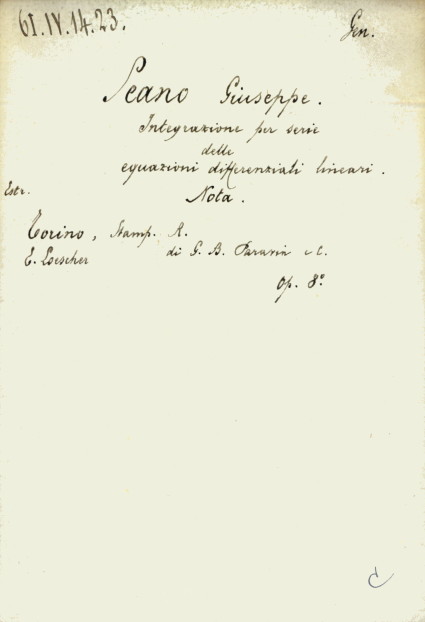 61.IV.14.23.
Gen.
Peano Giuseppe.
Integrazione per serie
delle
equazioni differenziali lineari.
Nota.
Estr.
Torino, Stamp. R.
E. Loescher di G. B. Paravia e C.
Op. 8°
C